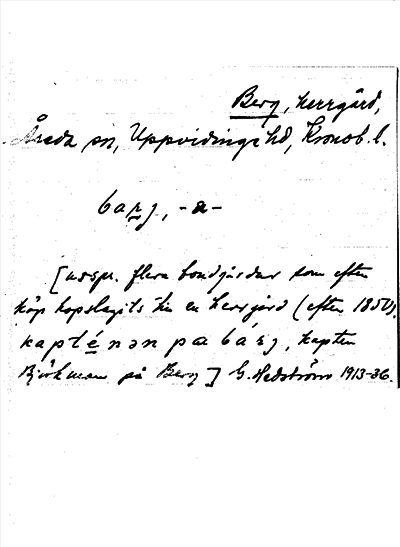 Berg, herrgård,
Åseda sn, Uppvidinge hd, Kronob. l.
barj, -a-
[urspr. flera bondgårdar som efter
köp hopslagits till en herrgård (efter 1850).
kapténən pa bárj, kapten
Björkman på Berg] G. Hedström 1913-36.